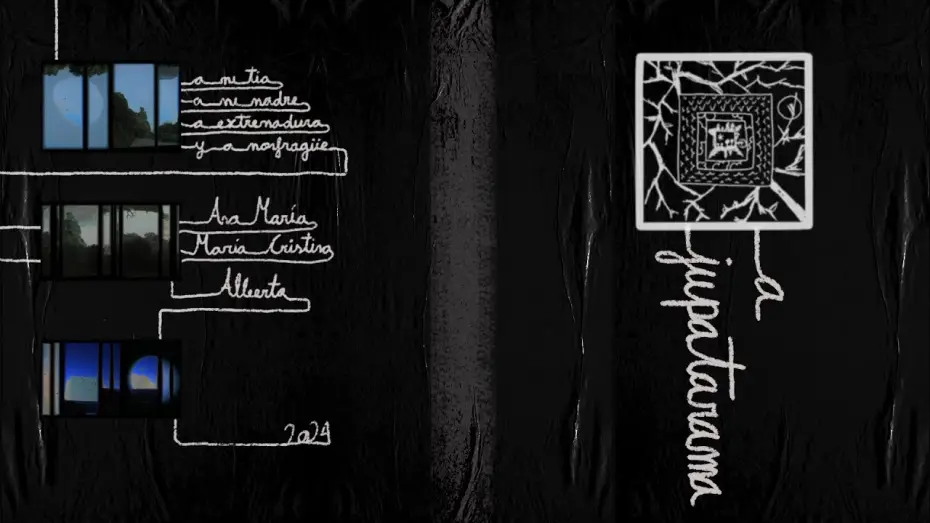 a mi tía
a mi madre
a extremadura
y a monfragüe
Ana María
María Cristina
Alberta
2024
a
jupatarama